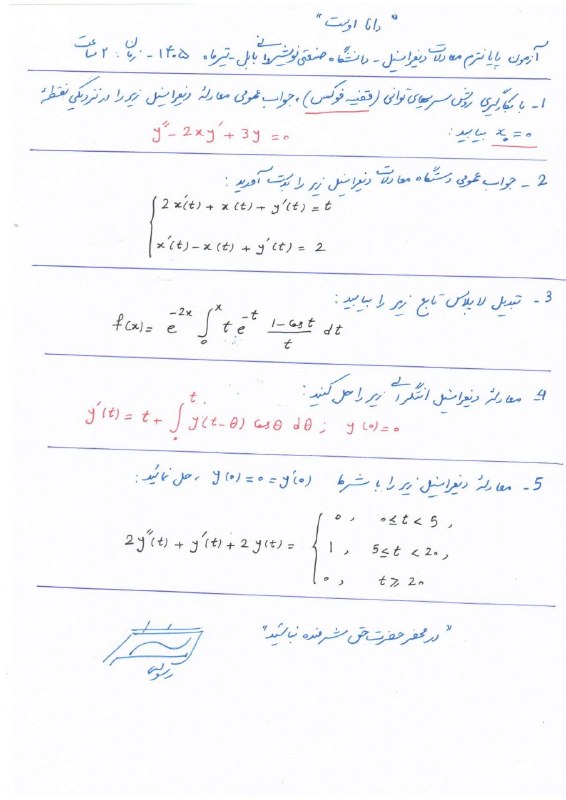 "دانا اوست"
آزمون پایانترم معادلات دیفرانسیل - دانشگاه صنعتی نوشیروانی بابل - تیرماه ۱۴۰۵ - زمان: ۲ ساعت
1- با بکارگیری روش سریهای توانی (قضیه فوکس)، جواب عمومی معادلهٔ دیفرانسیل زیر را در نزدیکی نقطهٔ
x₀ = 0 بیابید:
y″ - 2xy′ + 3y = 0
2- جواب عمومی دستگاه معادلات دیفرانسیل زیر را بدست آورید:
2x′(t) + x(t) + y′(t) = t
x′(t) - x(t) + y′(t) = 2
3- تبدیل لاپلاس تابع زیر را بیابید:
f(x) = e^{-2x} ∫₀ˣ t e^{-t} (1 - Cos t)/t dt
4- معادلهٔ دیفرانسیل انتگرالی زیر را حل کنید:
y′(t) = t + ∫₀ᵗ y(t-θ) Cosθ dθ ; y(0) = 0
5- معادلهٔ دیفرانسیل زیر را با شرط y(0) = 0 = y′(0) ، حل نمائید:
2y″(t) + y′(t) + 2y(t) = { 0 , 0 ≤ t < 5 ,
1 , 5 ≤ t < 20 ,
0 , t ≥ 20
"در محضر حضرت حق شرمنده نباشید"